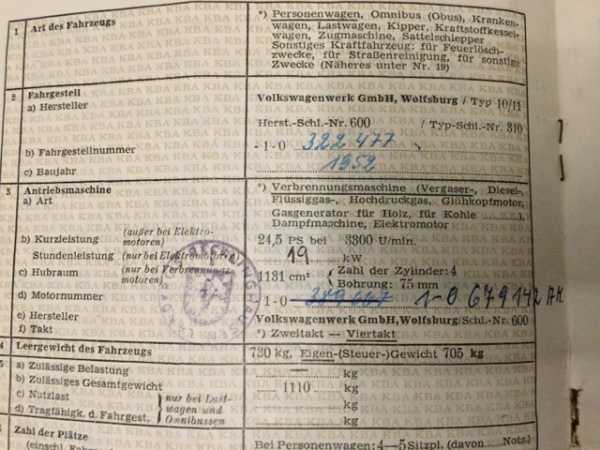 1 Art des Fahrzeugs
*) Personenwagen, Omnibus (Obus), Kranken-
wagen, Lastwagen, Kipper, Kraftstoffkessel-
wagen, Zugmaschine, Sattelschlepper
Sonstiges Kraftfahrzeug: für Feuerlösch-
zwecke, für Straßenreinigung, für sonstige
Zwecke (Näheres unter Nr. 19)
2 Fahrgestell
a) Hersteller
Volkswagenwerk GmbH, Wolfsburg / Typ 10/11
Herst.-Schl.-Nr. 600 / Typ-Schl.-Nr. 310
b) Fahrgestellnummer
- 1-0 322 477
c) Baujahr
1952
3 Antriebsmaschine
a) Art
*) Verbrennungsmaschine (Vergaser-, Diesel-,
Flüssiggas-, Hochdruckgas, Glühkopfmotor,
Gasgenerator für Holz, für Kohle ),
Dampfmaschine, Elektromotor
b) Kurzleistung (außer bei Elektro-
motoren)
24,5 PS bei 3300 U/min.
Stundenleistung (nur bei Elektromotoren)
19 kW
c) Hubraum (nur bei Verbrennungs-
motoren)
1131 cm³ Zahl der Zylinder: 4
Bohrung: 75 mm
d) Motornummer
1-0 1-0 679142 AM
e) Hersteller
Volkswagenwerk GmbH, Wolfsburg/Schl.-Nr. 600
f) Takt
*) Zweitakt — Viertakt
4 Leergewicht des Fahrzeugs
730 kg, Eigen-(Steuer-)Gewicht 705 kg
5 a) Zulässige Belastung
— kg
b) Zulässiges Gesamtgewicht
1110 kg
c) Nutzlast
d) Tragfähigk. d. Fahrgest.
nur bei Last-
wagen und
Omnibussen
kg
kg
Zahl der Plätze
(einschl.
Bei Personenwagen: 4—5 Sitzpl. (davon Notz.)